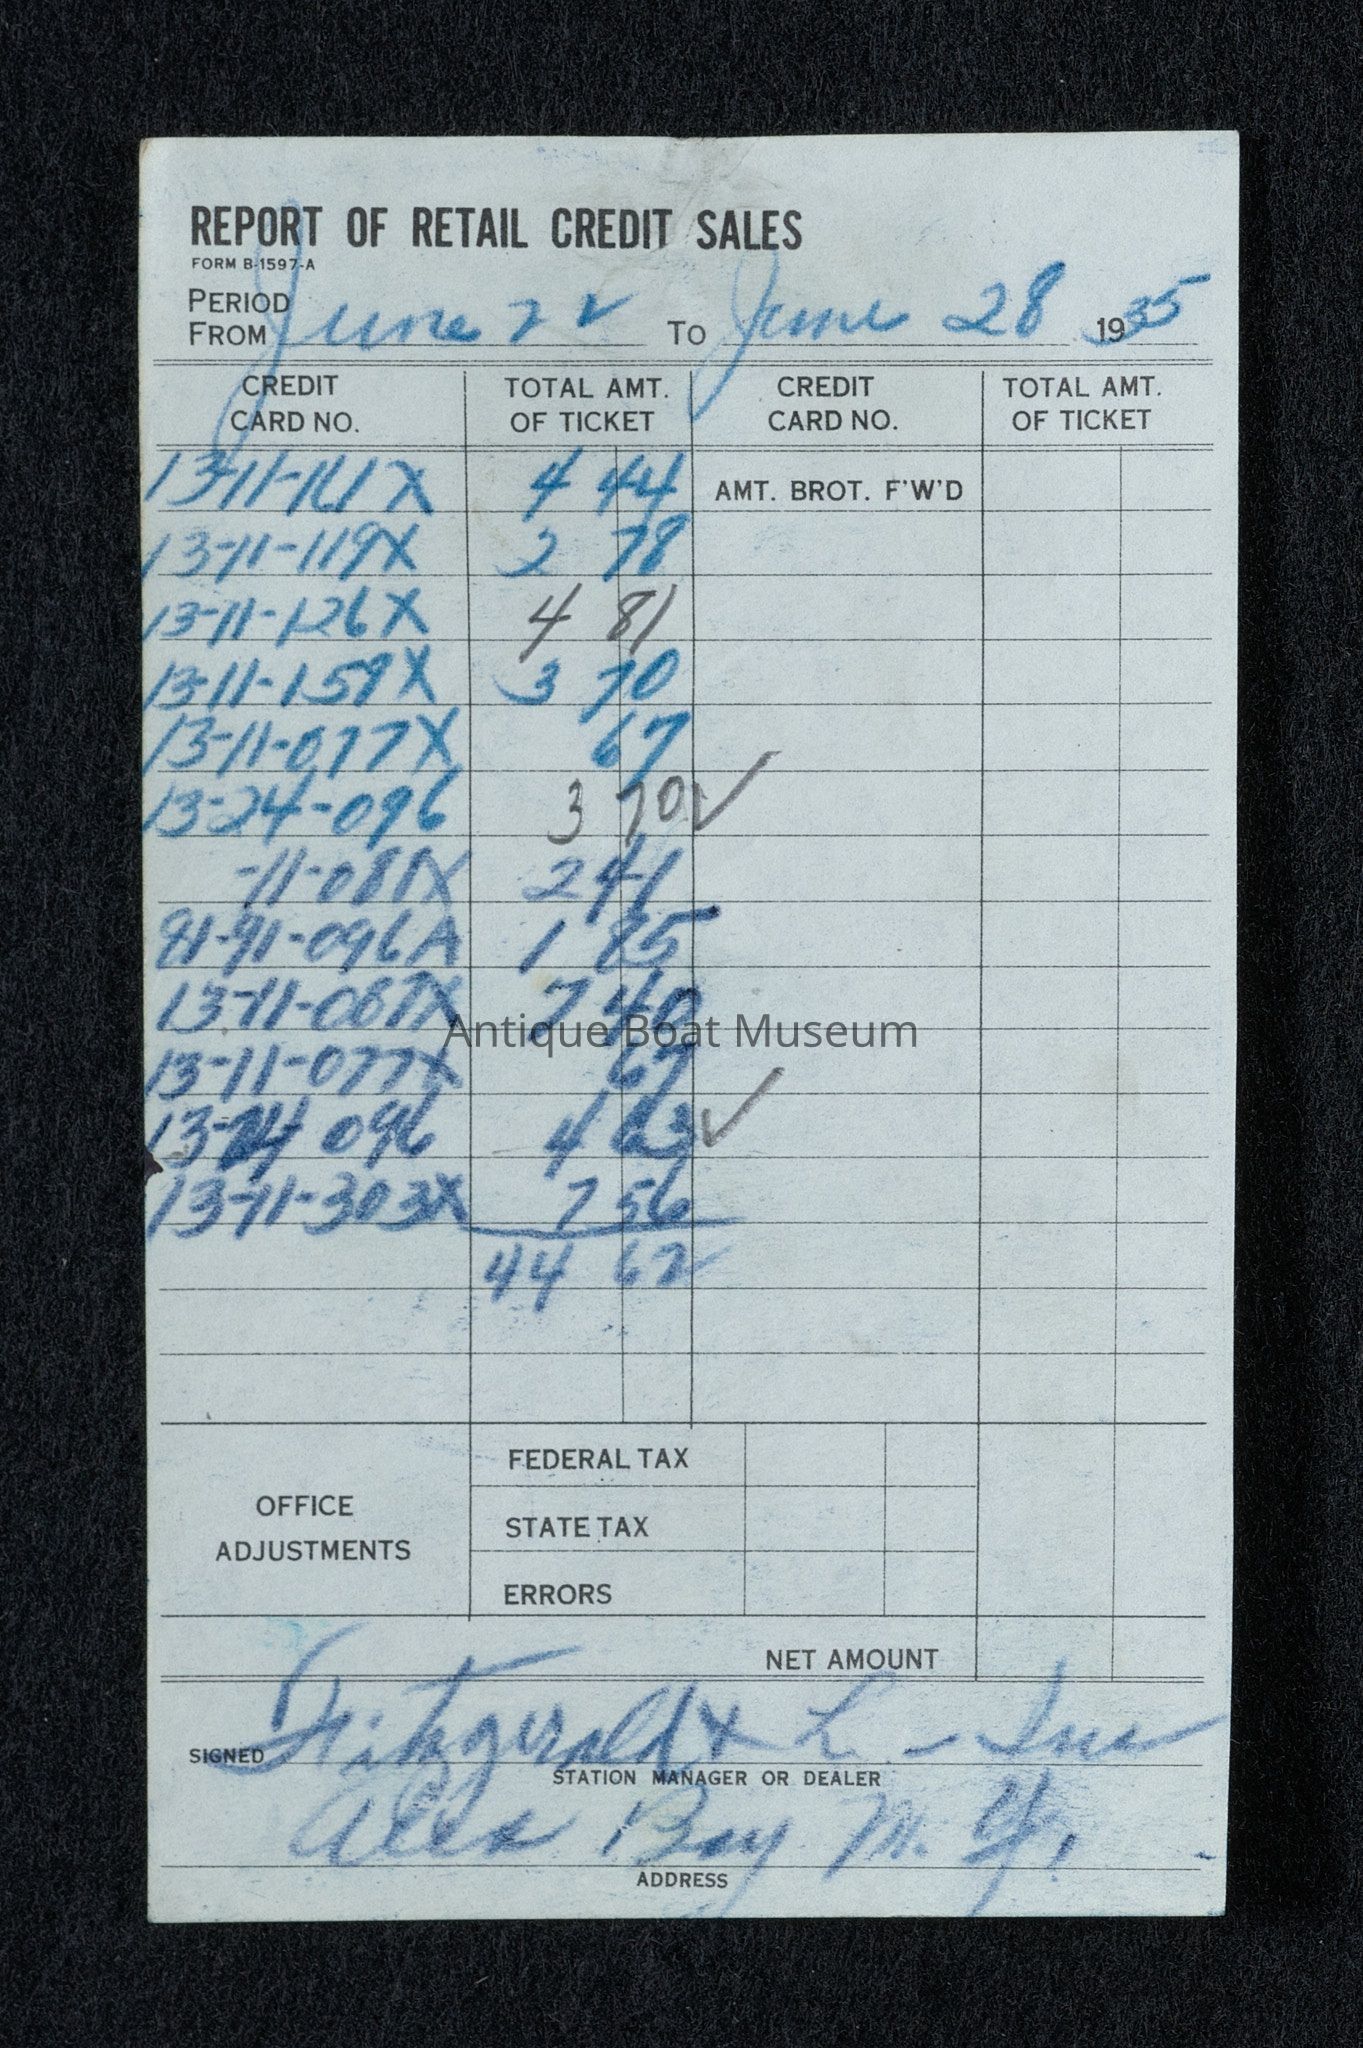 REPORT OF RETAIL CREDIT SALES
FORM B-1597-A
PERIOD
FROM June 22 TO June 28 1935
CREDIT CARD NO. TOTAL AMT. OF TICKET CREDIT CARD NO. TOTAL AMT. OF TICKET
13-11-141X 4 44 AMT. BROT. F'W'D
13-11-119X 2 78
13-11-126X 4 81
13-11-159X 3 70
13-11-077X 67
13-24-096 3 70 ✓
-11-088X 2 41
91-91-096A 1 85
13-11-068X 7 40
Antique Boat Museum
13-11-077X 67
13-24 096 4 63 ✓
13-11-303X 7 56
44 62
OFFICE ADJUSTMENTS
FEDERAL TAX
STATE TAX
ERRORS
NET AMOUNT
SIGNED Fitzgerald & L - Inc
STATION MANAGER OR DEALER
Alex Bay N. Y.
ADDRESS